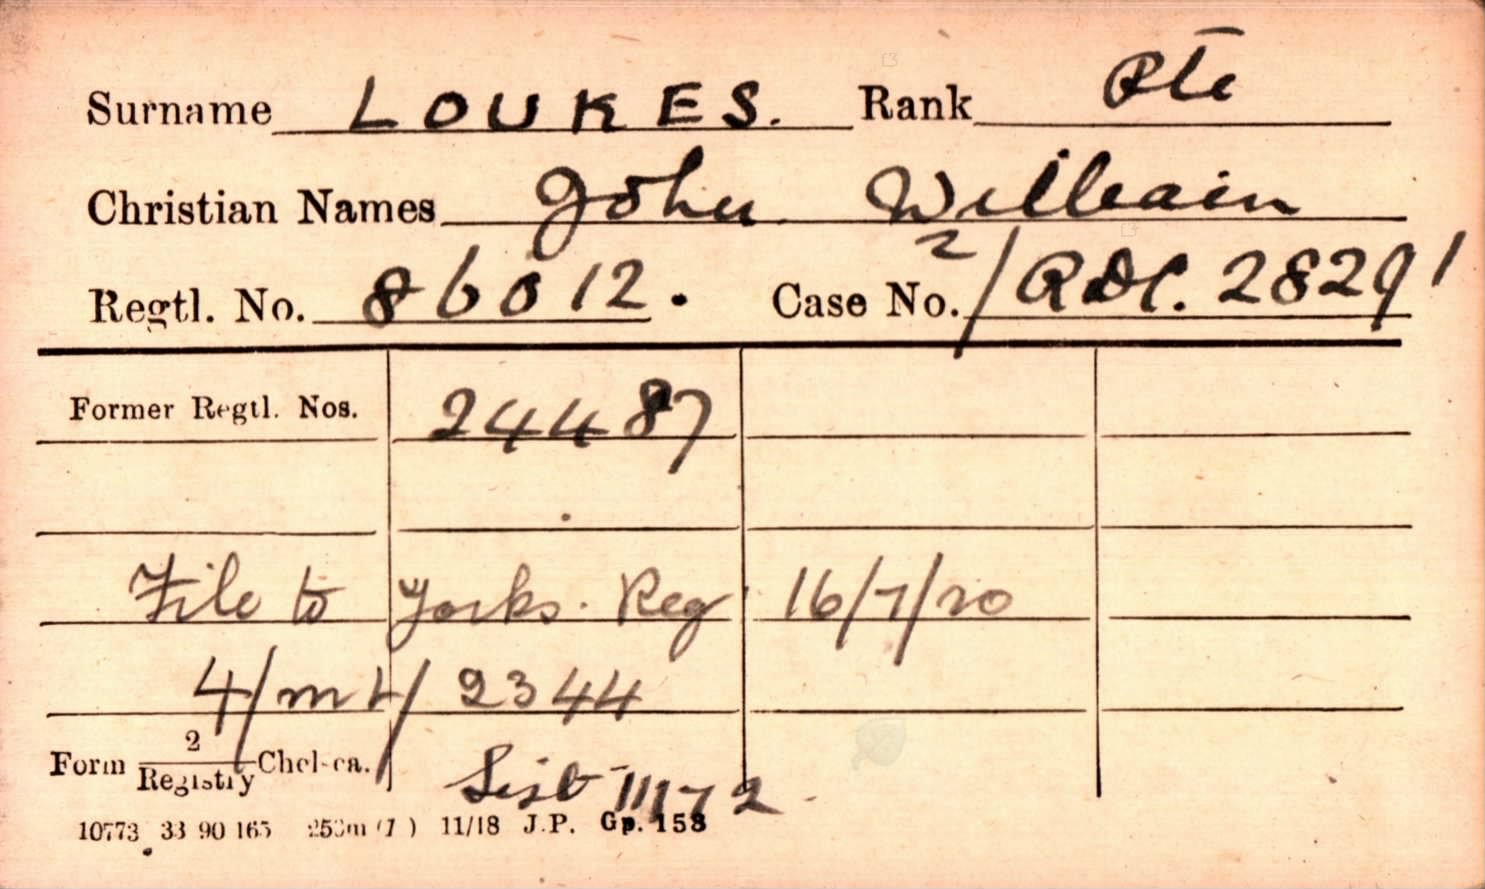 Surname LOUKES. Rank Pte
Christian Names John William
Regtl. No. 86012. Case No. 2/RDC. 28291
Former Regtl. Nos. 24487
File to Yorks. Reg 16/7/20
4/MH/2344
Form 2/Registry Chelsea.
List 11172
10773 33 90 165 250m (7) 11/18 J.P. Gp. 158